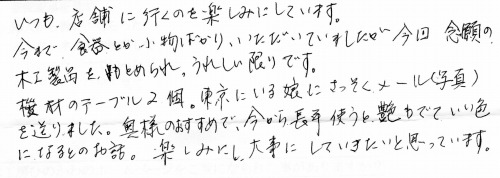 いつも、店舗に行くのを楽しみにしています。
今まで、食器とか小物ばかり、いただいていましたが今回 念願の
木工製品を、勧められ、うれしい限りです。
桜材のテーブル2個。東京にいる娘にさっそくメール(写真)
を送りました。奥様のおすすめで、今から長年使うと、艶もでていい色
になるとのお話。楽しみにし、大事にしていきたいと思っています。